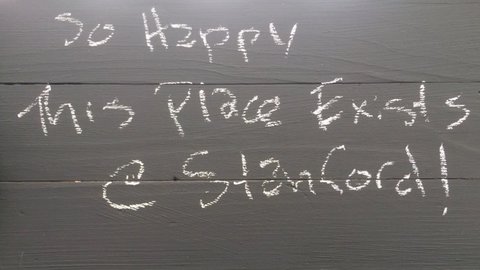 So Happy
This Place Exists
@ Stanford!